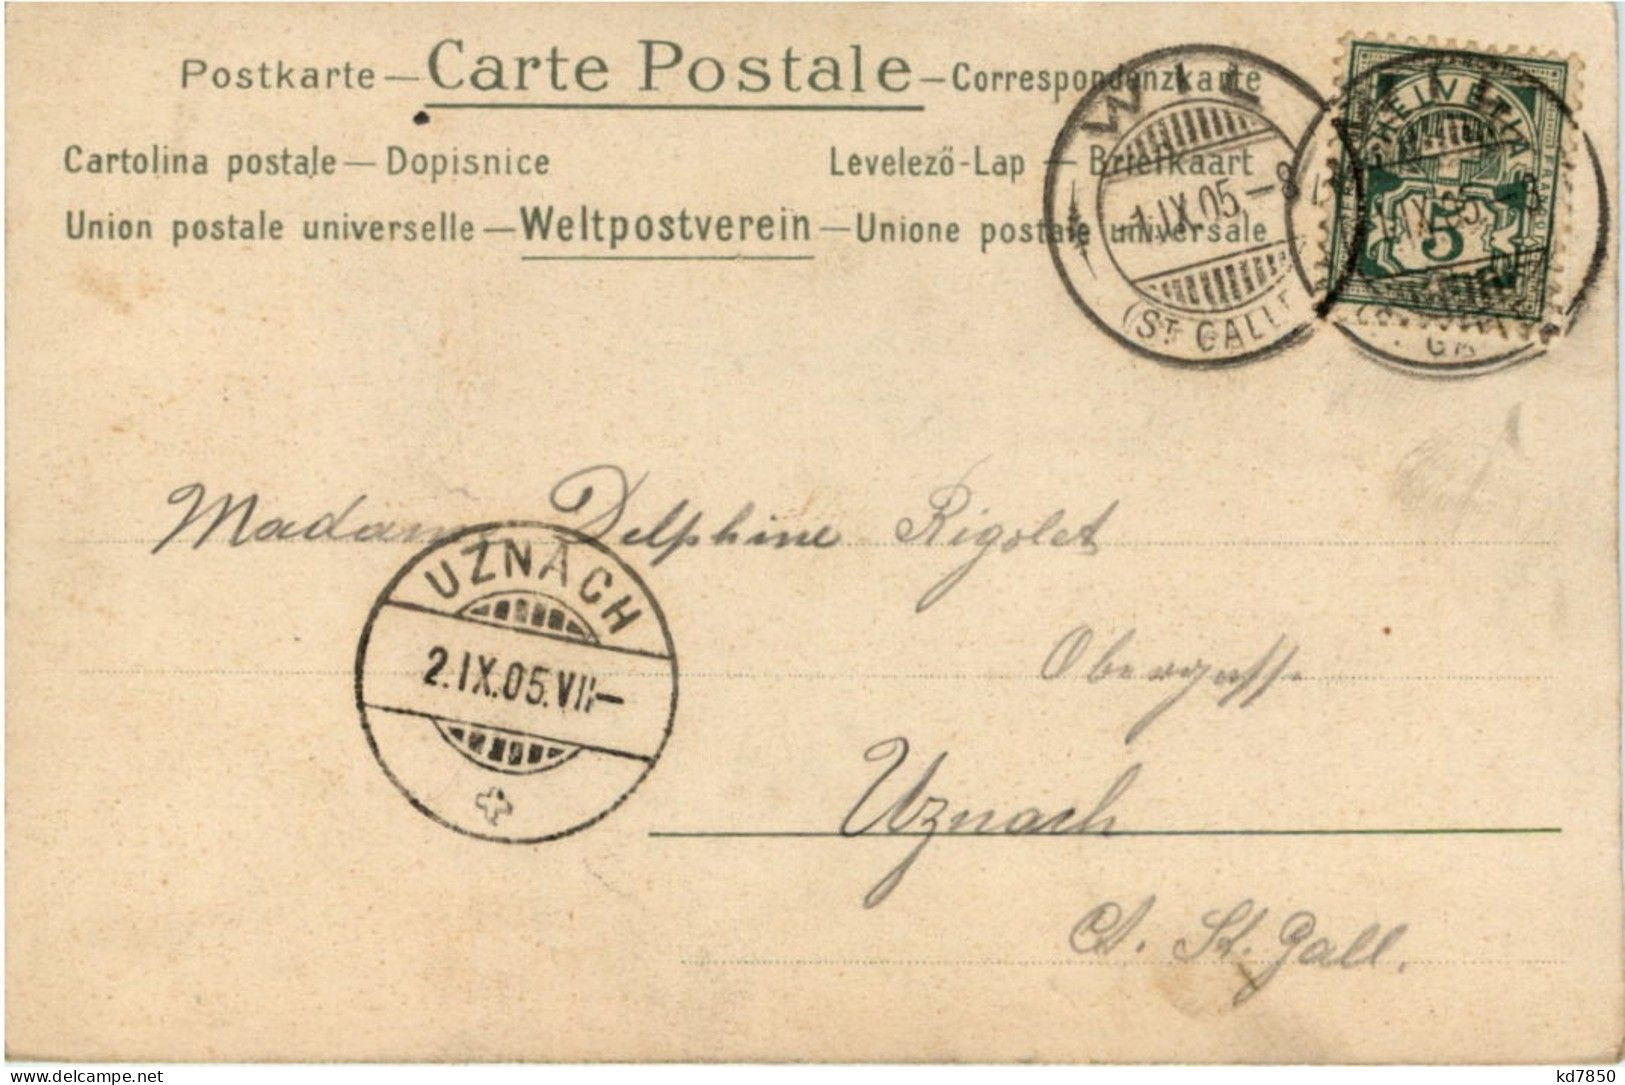 Postkarte — Carte Postale — Correspondenzkarte
Cartolina postale — Dopisnice
Levelező-Lap — Briefkaart
Union postale universelle — Weltpostverein — Unione postale universale
WIL
1.IX.05.-8
(ST. GALL
HELVETIA
FRANCO
5
1.IX.05.-8
Madame Delphine Rigolet
UZNACH
2.IX.05.VII-
Obergasse
Uznach
Ct. St. Gall.
www.delcampe.net
kd7850